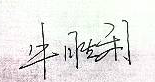 牛胜利